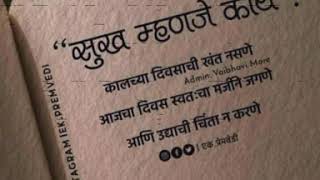 “सुख म्हणजे काय ?
कालच्या दिवसाची खंत नसणे
Admin. Vaibhavi More
आजचा दिवस स्वतःचा मर्जीने जगणे
आणि उद्याची चिंता न करणे
| एक प्रेमवेडी
TAGRAM |EK.PREMVEDI